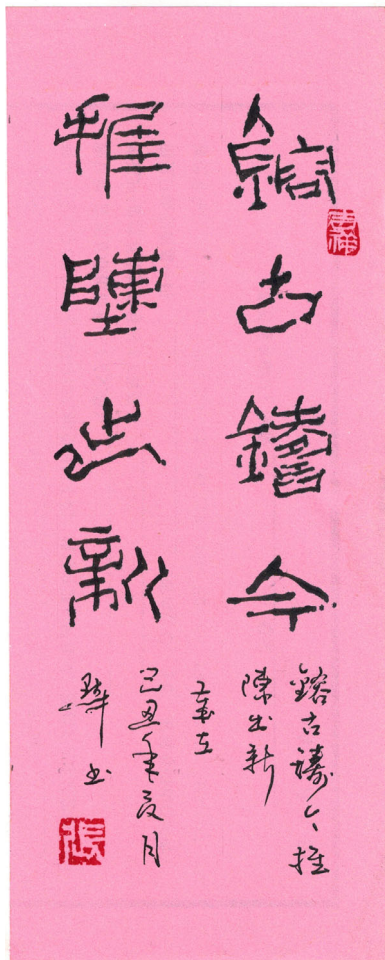 鎔古鑄今
推陳出新
鎔古鑄今推
陳出新
己丑年夏月
書
張